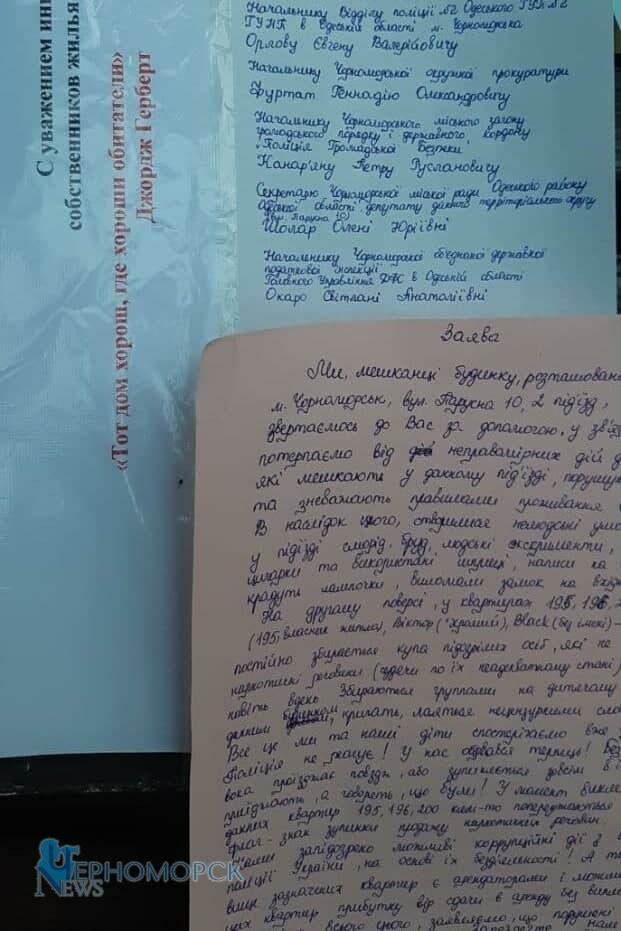 С уважением
собственников жилья
«Тот дом хорош, где хороши обитатели»
Джордж Герберт
Начальнику Відділу поліції №2 Одеського
ГУНП в Одеській області м. Чорноморська
Орлову Євгену Валерійовичу
Начальнику Чорноморської окружної прокуратури
Фуртат Геннадію Олександровичу
Начальнику Чорноморського міського загону
громадського порядку і державного кордону
"Поліція Громадської Безпеки"
Канар'яну Петру Руслановичу
Секретарю Чорноморської міської ради Одеського району
Одеської області депутату даного територіального округу
(вул. Парусна 10)
Шолар Олені Юріївні
Начальнику Чорноморської об'єднаної державної
податкової інспекції
Головного Управління ДФС в Одеській області
Окаро Світлані Анатоліївні
Заява
Ми, мешканці будинку,
м. Чорноморськ, вул. Парусна 10, 2 під'їзд,
звертаємось до Вас за допомогою, у
потерпаємо від неправомірних дій
які мешкають у данному під'їзді,
та зневажають правилами проживання
В наслідок цього, нелюдські
у під'їзді сморід, бруд, людські экскрименти,
цигарки та використані шприці, написи на
крадуть лампочки, виломали замок на
На другому поверсі, у квартирах 195, 196,
(195 власник житла), Віктор ("Хромий"), Black
постійно збирається купа підозрілих осіб, які не
наркотичні речовини (судячи по їх неадекватному стані)
навіть вдень збираються группами на дитячому
данним будинком, кричать, лаяться нецензурними
Все це ми та наші діти спостерігаємо вже
Поліція не реагує! У нас обірвався терпець!
вока проїзджає повз, або зупиняється зовсім в
приїзджають, а говорять, що були! У момент
даних квартир 195, 196, 200 кимі-то попереджаються
флаг - знак зупинки продажу наркотичних речовин.
Нами запідозрено можливі коррупційні дії в
поліції України, на основі їх бездіяльності! А
вище зазначених квартир є арендаторами і
цих квартир прибутку від сдачі в аренду без
всього цього, заявляємо, що порушені
ЧЕРНОМОРСК
NEWS